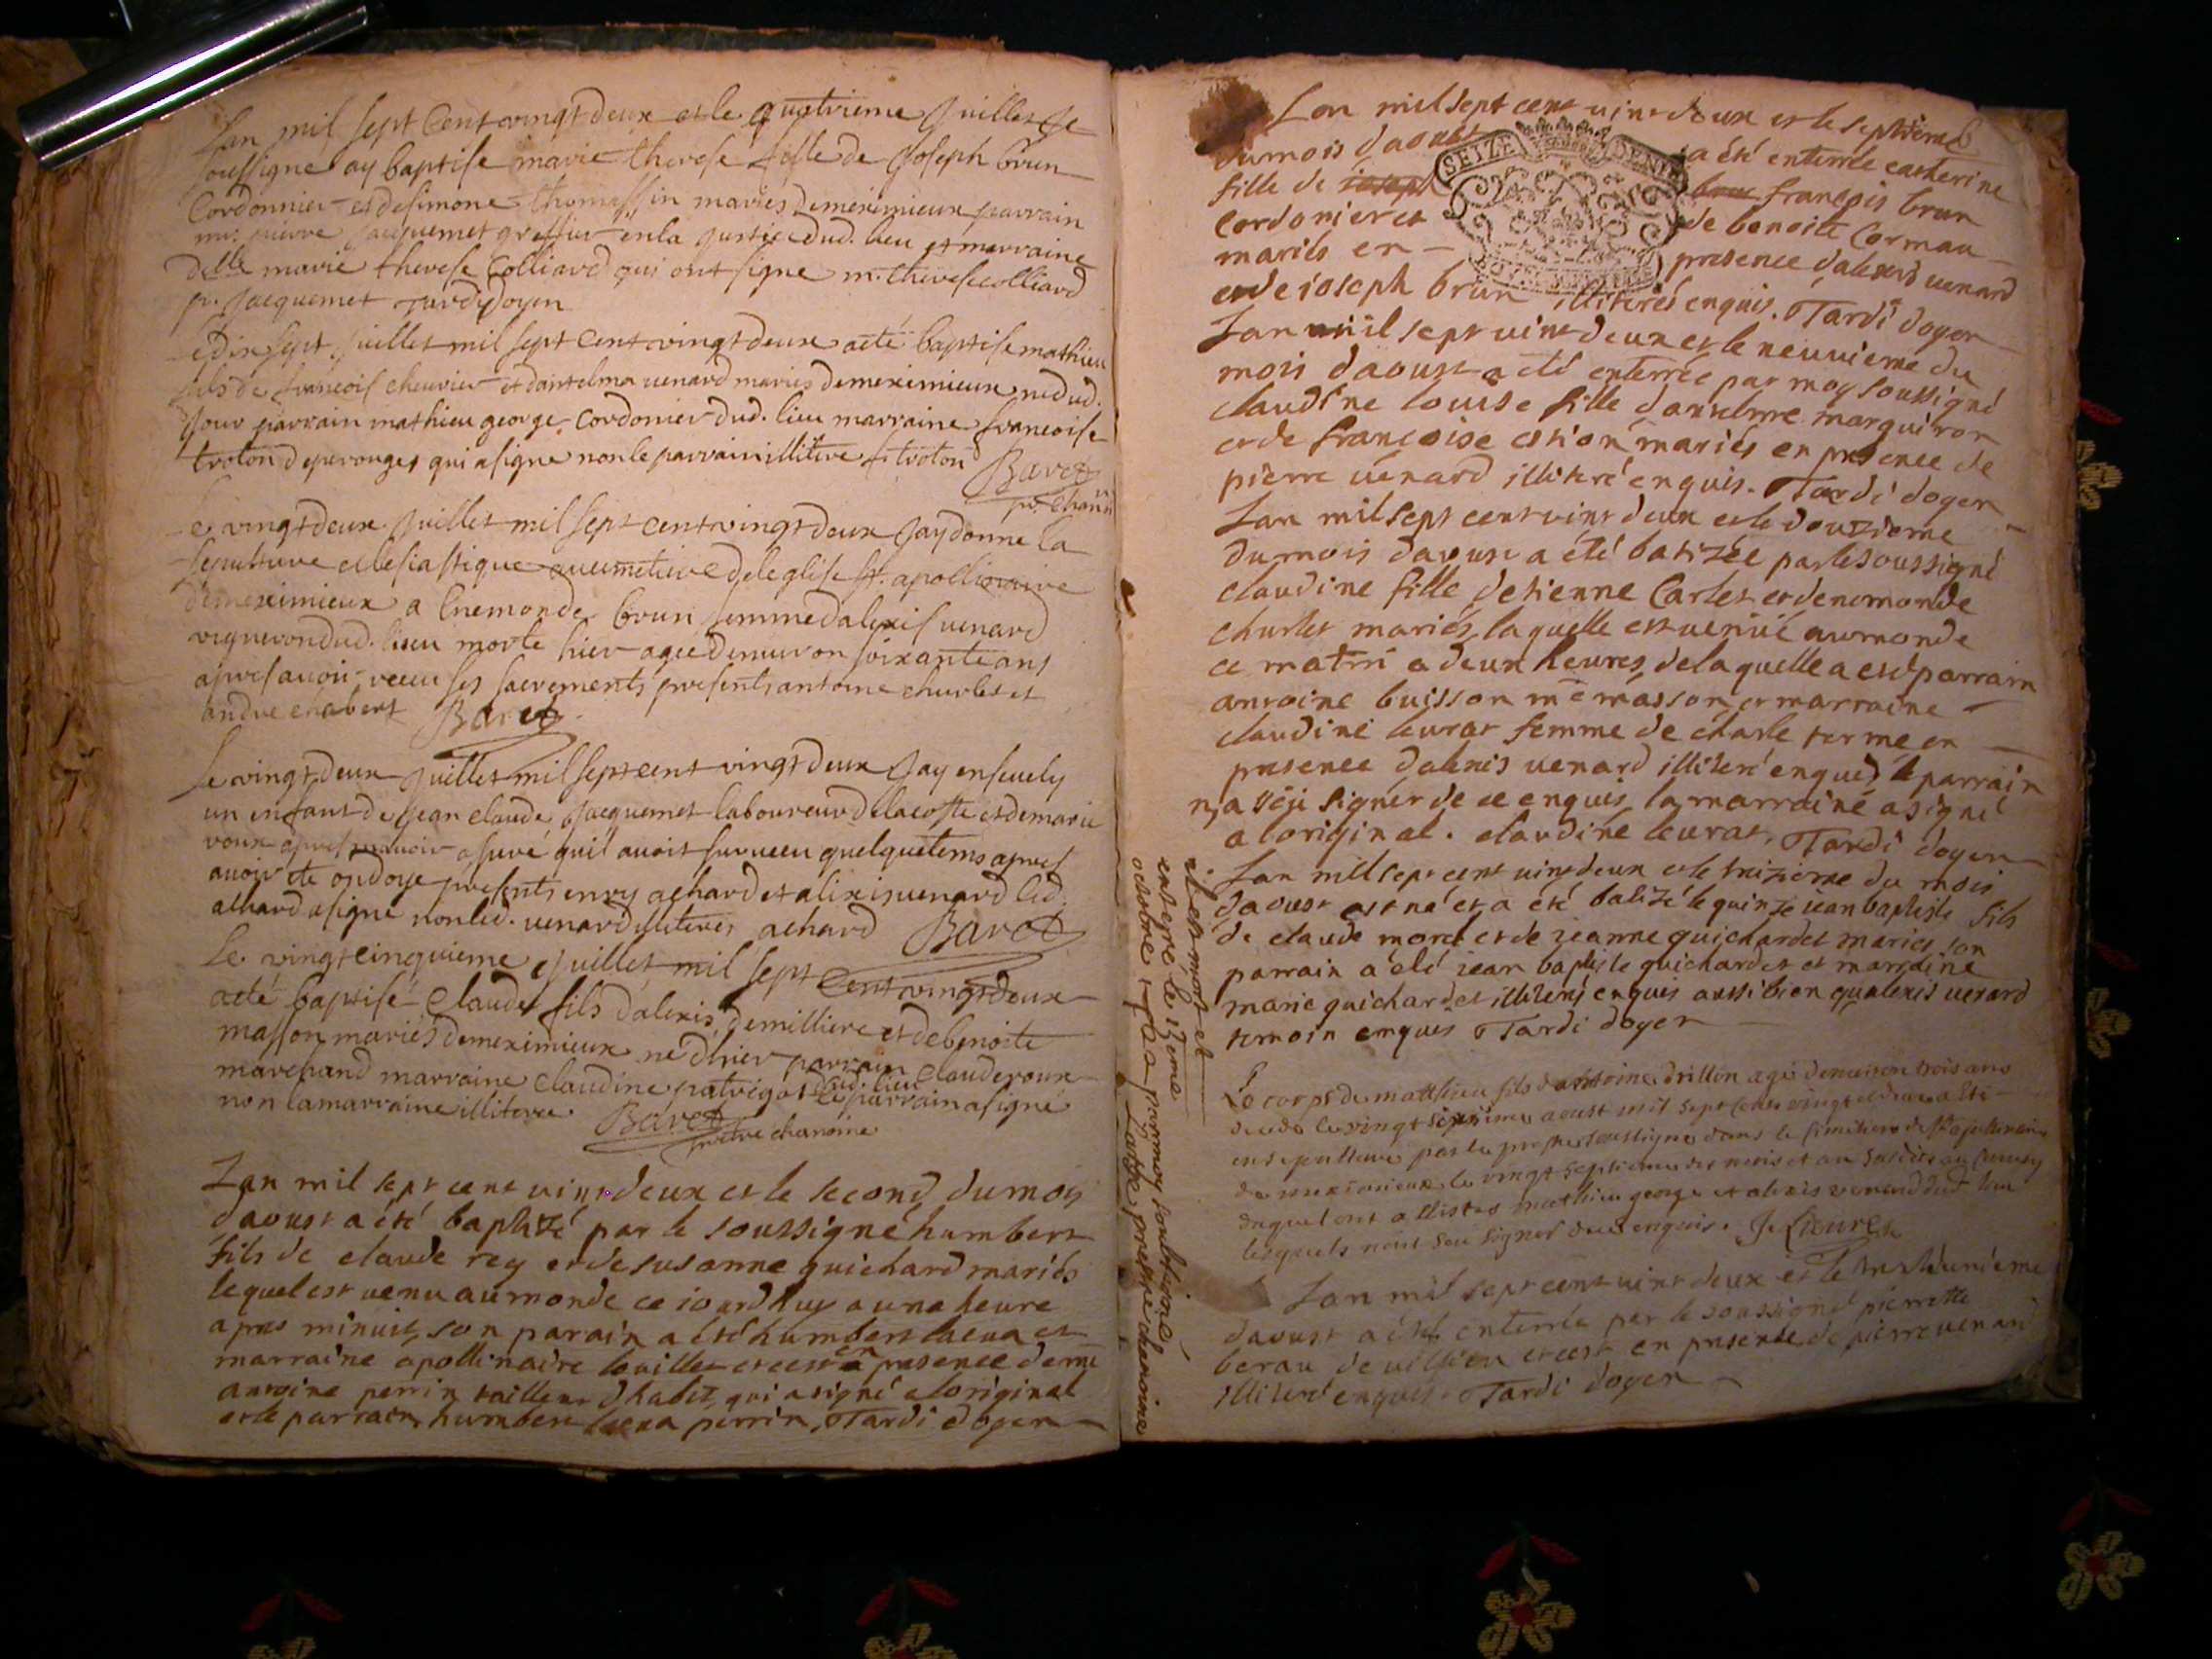 Lan mil sept Cent vingt deux et le quatrieme Juillet Je
soussigne ay baptise marie therese fille de Joseph brun
Cordonnier et de simone thomassin mariés de meximieux parrain
mr. pierre Jacquemet greffier en la Justice dud. lieu et marraine
delle marie therese Colliard qui ont signe m. therese colliard
p. Jacquemet Tardy doyen
Le dix sept Juillet mil sept Cent vingt deux a eté baptise mathieu
fils de francois cheuvier et dantelma uenard mariés de meximieux né dud.
Jour parrain mathieu george Cordonier dud. lieu marraine francoise
troton de perouges qui a signe non le parrain illitere f troton
Baret
pr. chann
Le vingt deux Juillet mil sept cent vingt deux Jay donne la
sepulture eclesiastique au cimetiere de leglise St. apollinaire
de meximieux a Enemonde brun femme dalexis uenard
vigneron dud. lieu morte hier agee denuiron soixante ans
apres auoir receu ses sacrements presents antoine churlet et
andre chabert Baret
Le vingt deux Juillet mil sept cent vingt deux Jay enseuely
un enfant de Jean claude Jacquemet laboureur de la coste et de marie
roux apres mauoir asuré quil auoit suruecu quelque tems apres
auoir eté ondoye presents enry achard et alexis uenard led.
achard a signe non led. uenard illiteres achard Baret
Le vingt cinquieme Juillet mil sept Cent vingt deux
a eté baptisé Claude fils dalexis demilliere et de benoite
masson mariés de meximieux né dhier parrain claude roux
marchand marraine claudine patrigot dud. lieu le parrain a signé
non la marraine illiteree Baret
pretre chanoine
Lan mil sept cent vint deux et le second du mois
daoust a été baptizé par le soussigné humbert
fils de claude rey et de susanne guichard mariés
lequel est uenu au monde ce iourdhuy a une heure
apres minuit, son parain a été humbert lhena et
marraine apollinaire louillet et cest en presence de mr
antoine perrin tailleur dhabit, qui a signé a loriginal
et le parrain, humbert lhena perrin, Tardi doyen
Lan mil sept cent vint deux et le septieme
du mois daoust a été enterrée catherine
fille de joseph brun francois brun
cordonier et de benoite Cormau
mariés en presence dalexis uenard
et de ioseph brun illiterés enquis. Tardi doyen
Lan mil sept vint deux et le neuvieme du
mois daoust a été enterrée par moy soussigné
claudine louise fille danselme marguiron
et de francoise estion mariés en presence de
pierre uenard illiteré enquis. Tardi doyen
Lan mil sept cent vint deux et le douzieme
du mois daoust a été batizée par le soussigné
claudine fille detienne Carlet et denemonde
churlet mariés, laquelle est uenue au monde
ce matin a deux heures, de laquelle a esté parrain
antoine buisson me masson, et marraine
claudine leurat femme de charle terme en
presence dalexis uenard illiteré enquis le parrain
n'a sceu signer de ce enquis, la marraine a signé
a loriginal. claudine leurat, Tardi doyen
Lan mil sept cent vint deux et le treizieme du mois
daoust est né et a été batizé le quinze iean baptiste fils
de claude morel et de ieanne guichardet mariés, son
parrain a été iean baptiste guichardet et marraine
marie guichardet illiterés enquis aussi bien qualexis uenard
temoin enquis Tardi doyen
il est mort et
enterré le 17eme
octobre 1722 par moy soussigné
Lattre pretre chanoine
Le corps de matthieu fils dantoine drillon agé denuiron trois ans
decedé le vingt sixieme aoust mil sept cent vingt et deux a été
en sepulture par le pretre soussigné dans le simitiere de St apollinaire
de meximieux le vingt septieme des mois et an susdits au conuoy
duquel ont assistes matthieu george et alexis venard dud lieu
lesquels n'ont seu signer de ce enquis. J. Lieure
Lan mil sept cent vint deux et le trente unieme
daoust a été enterrée par le soussigné pierrette
berau de villieu et cest en presence de pierre uenard
illiteré enquis. Tardi doyen
SEIZE DENIE